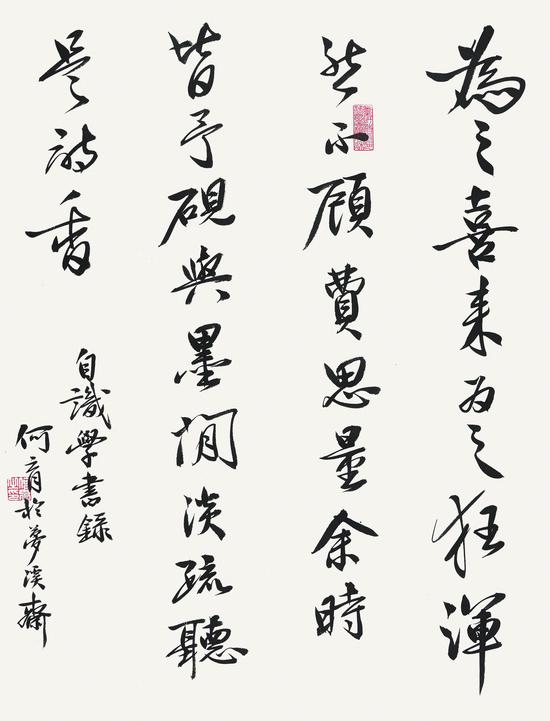 為之喜来为之狂渾
然不顧費思量余時
皆予硯與墨閒淡疏聽
是詩香
自識學書錄
何育於夢溪齋